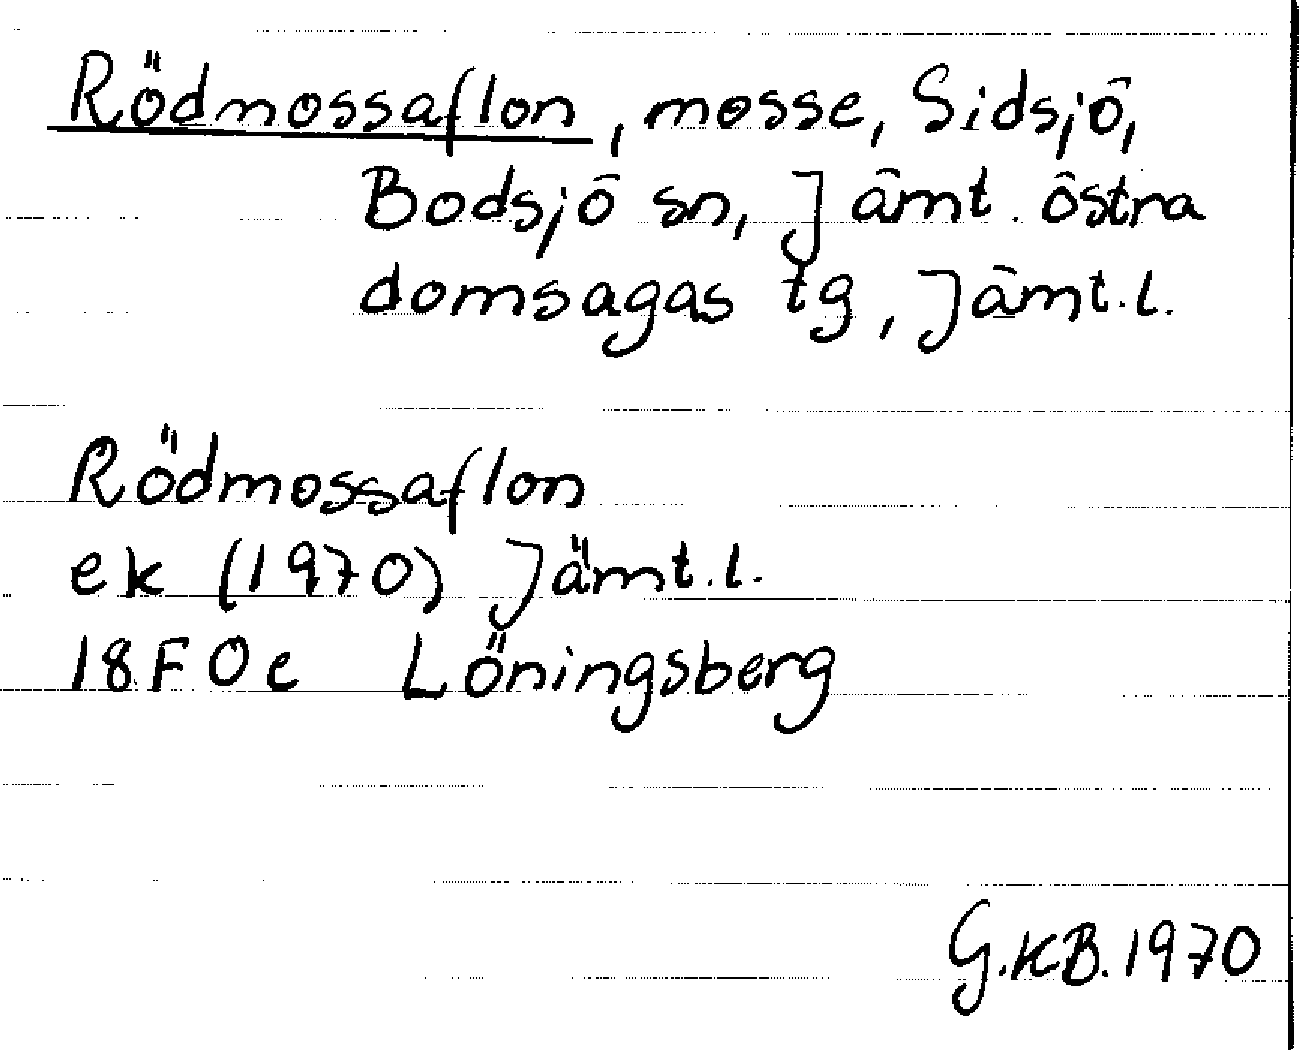 Rödmossaflon, mosse, Sidsjö,
Bodsjö sn, Jämt. östra
domsagas tg, Jämt.l.
Rödmossaflon
ek (1970) Jämt.l.
18F0e Löningsberg
G.KB.1970